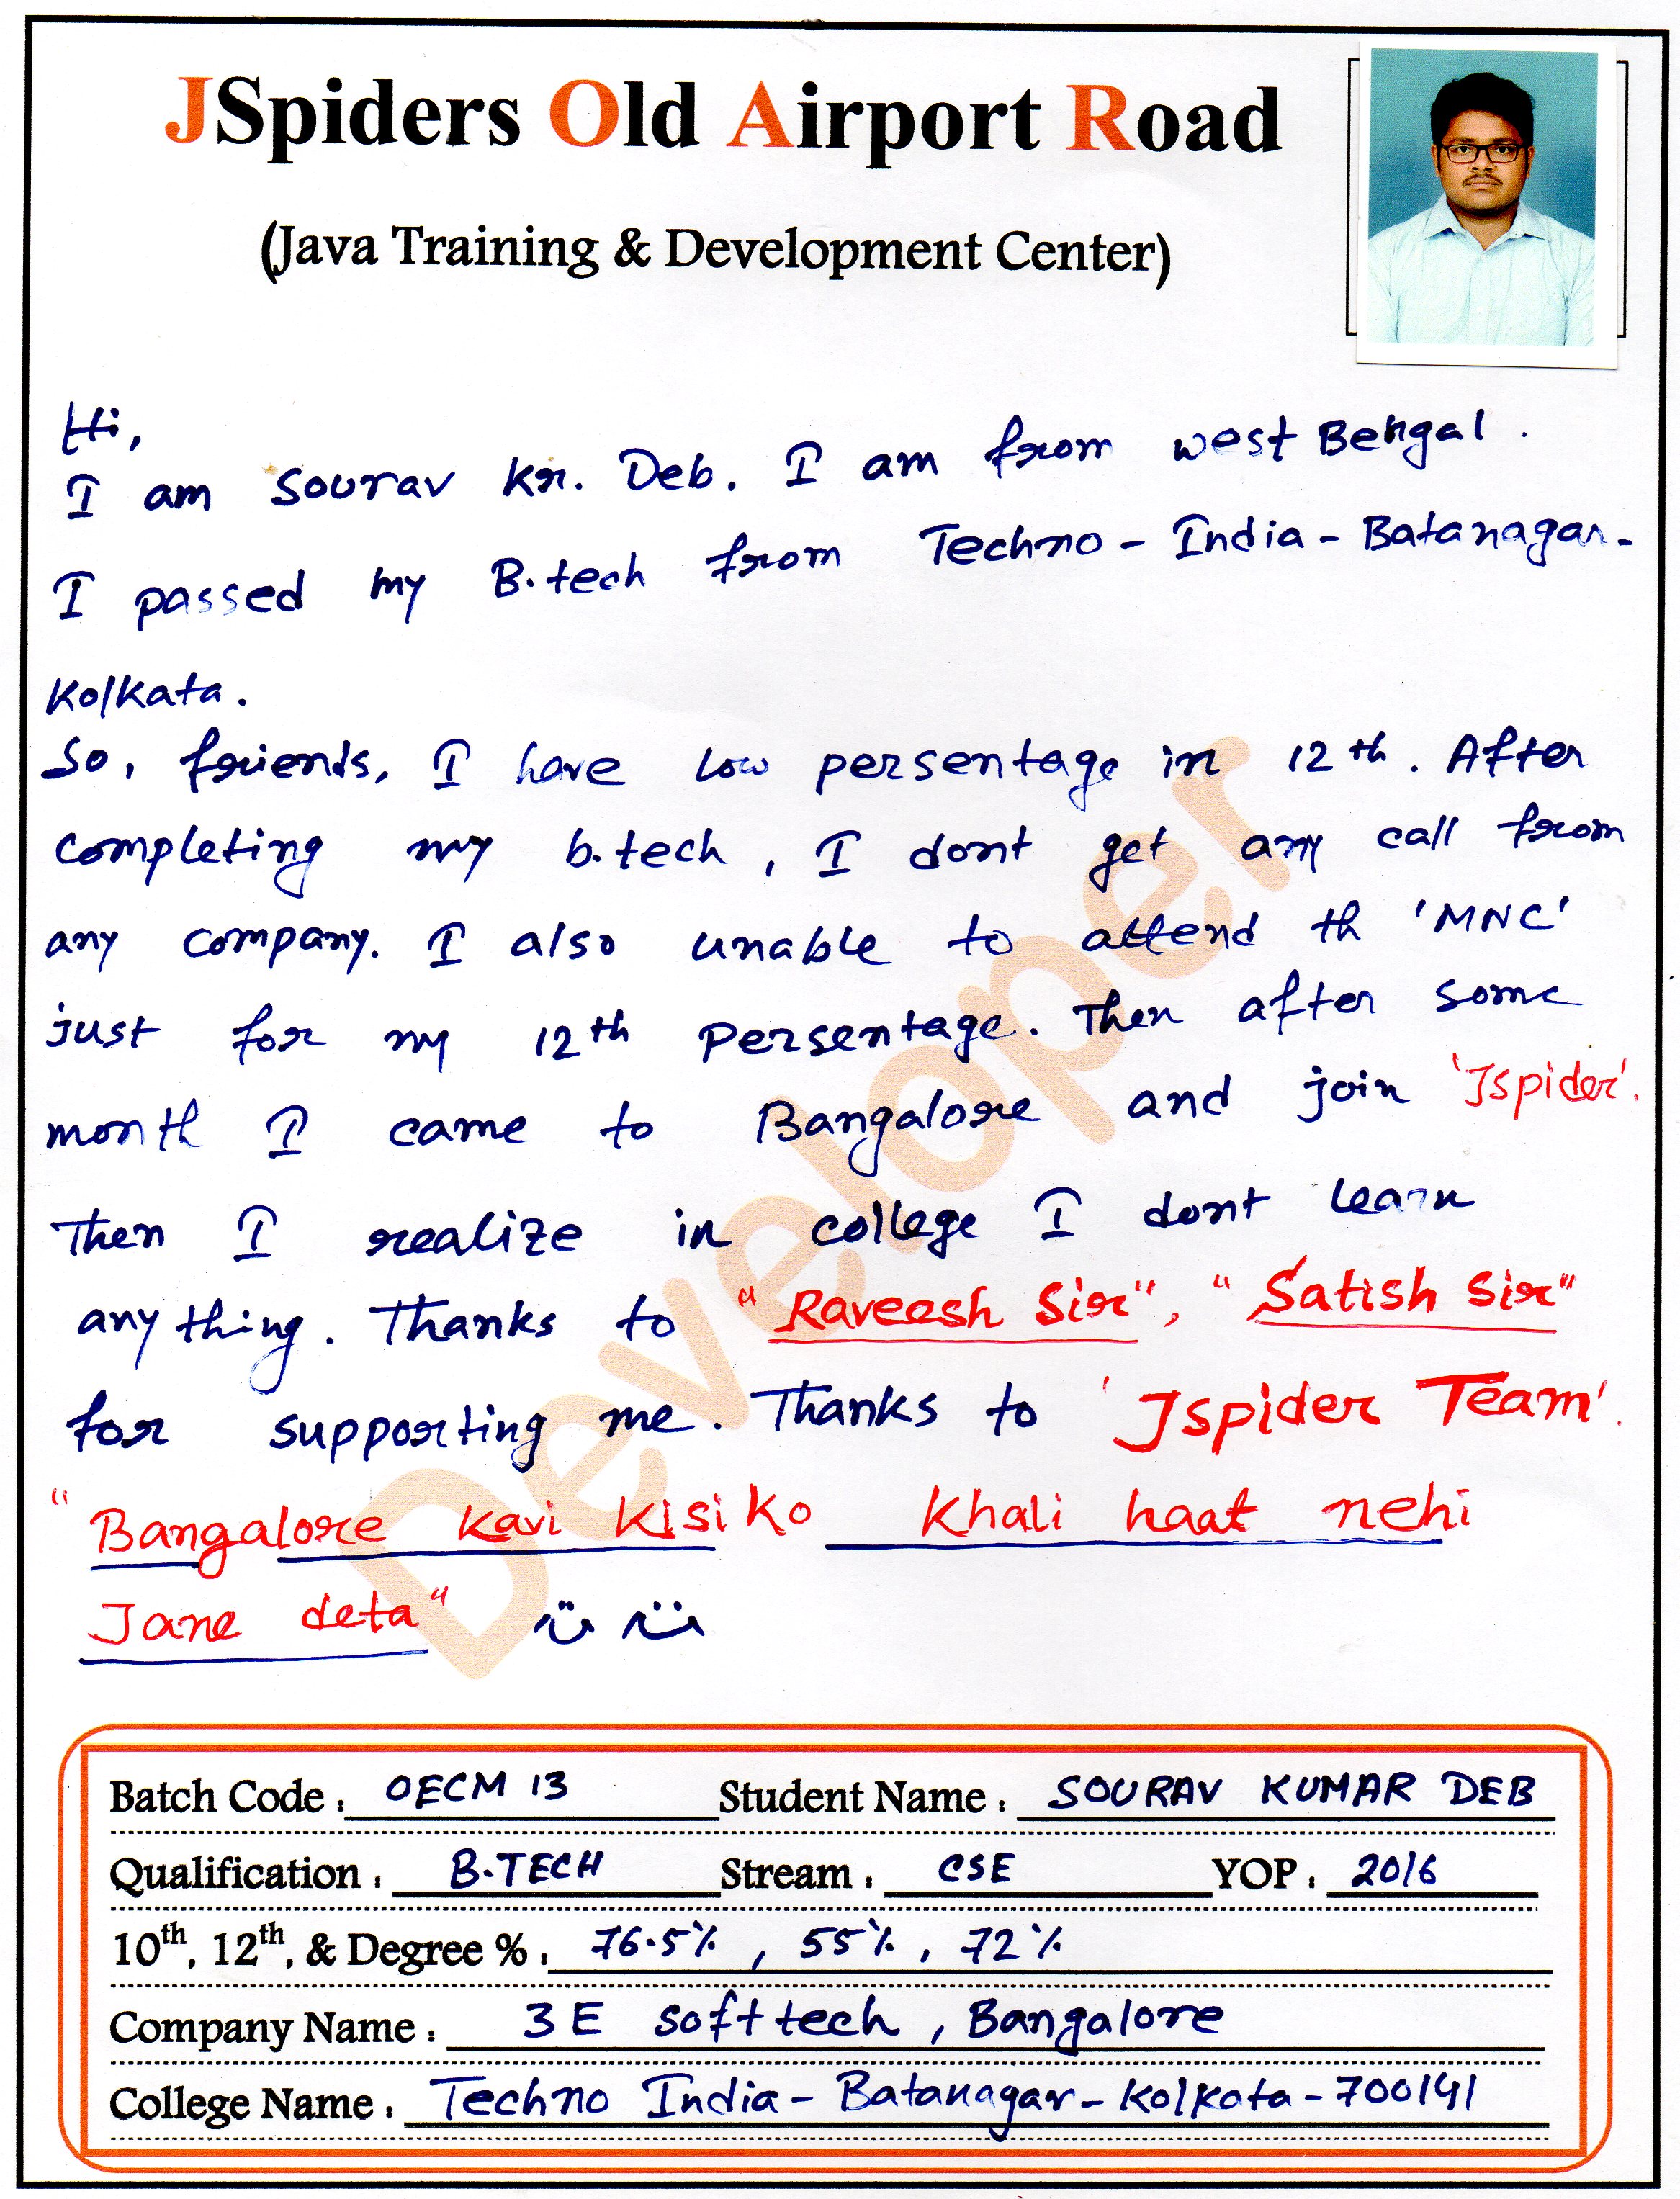 JSpiders Old Airport Road
(Java Training & Development Center)
Hi,
I am Sourav Kr. Deb. I am from west Bengal.
I passed my B.tech from Techno-India-Batanagar-
Kolkata.
So, friends, I have low persentage in 12th. After
completing my b.tech, I dont get any call from
any company. I also unable to attend th 'MNC'
just for my 12th persentage. Then after some
month I came to Bangalore and join 'Jspider'.
Then I realize in college I dont learn
any thing. Thanks to "Raveesh Sir", "Satish Sir"
for supporting me. Thanks to 'Jspider Team'.
"Bangalore kavi kisi ko khali haat nehi
Jane deta"
Developer
Batch Code : OECM 13 Student Name : SOURAV KUMAR DEB
Qualification : B.TECH Stream : CSE YOP : 2016
10th, 12th, & Degree % : 76.5% , 55% , 72%
Company Name : 3E softtech, Bangalore
College Name : Techno India-Batanagar-Kolkata-700141